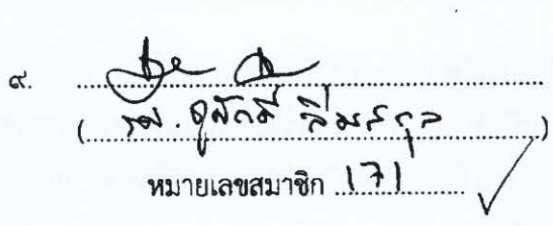 ๙.
( รศ. ดุสักดิ์ ลิ่มสกุล )
หมายเลขสมาชิก 171